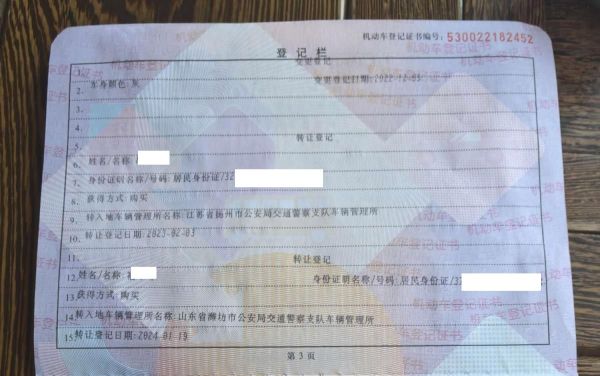 机动车登记证书编号：530022182452
登记栏
1. 变更登记
2. 车身颜色：灰 变更登记日期：2022-12-05
3.
4.
5. 转让登记
6. 姓名/名称：
7. 身份证明名称/号码：居民身份证/32
8. 获得方式：购买
9. 转入地车辆管理所名称：江苏省扬州市公安局交通警察支队车辆管理所
10. 转让登记日期：2023-02-03
11. 转让登记
12. 姓名/名称： 身份证明名称/号码：居民身份证/37
13. 获得方式：购买
14. 转入地车辆管理所名称：山东省潍坊市公安局交通警察支队车辆管理所
15. 转让登记日期：2024-01-19
第 3 页